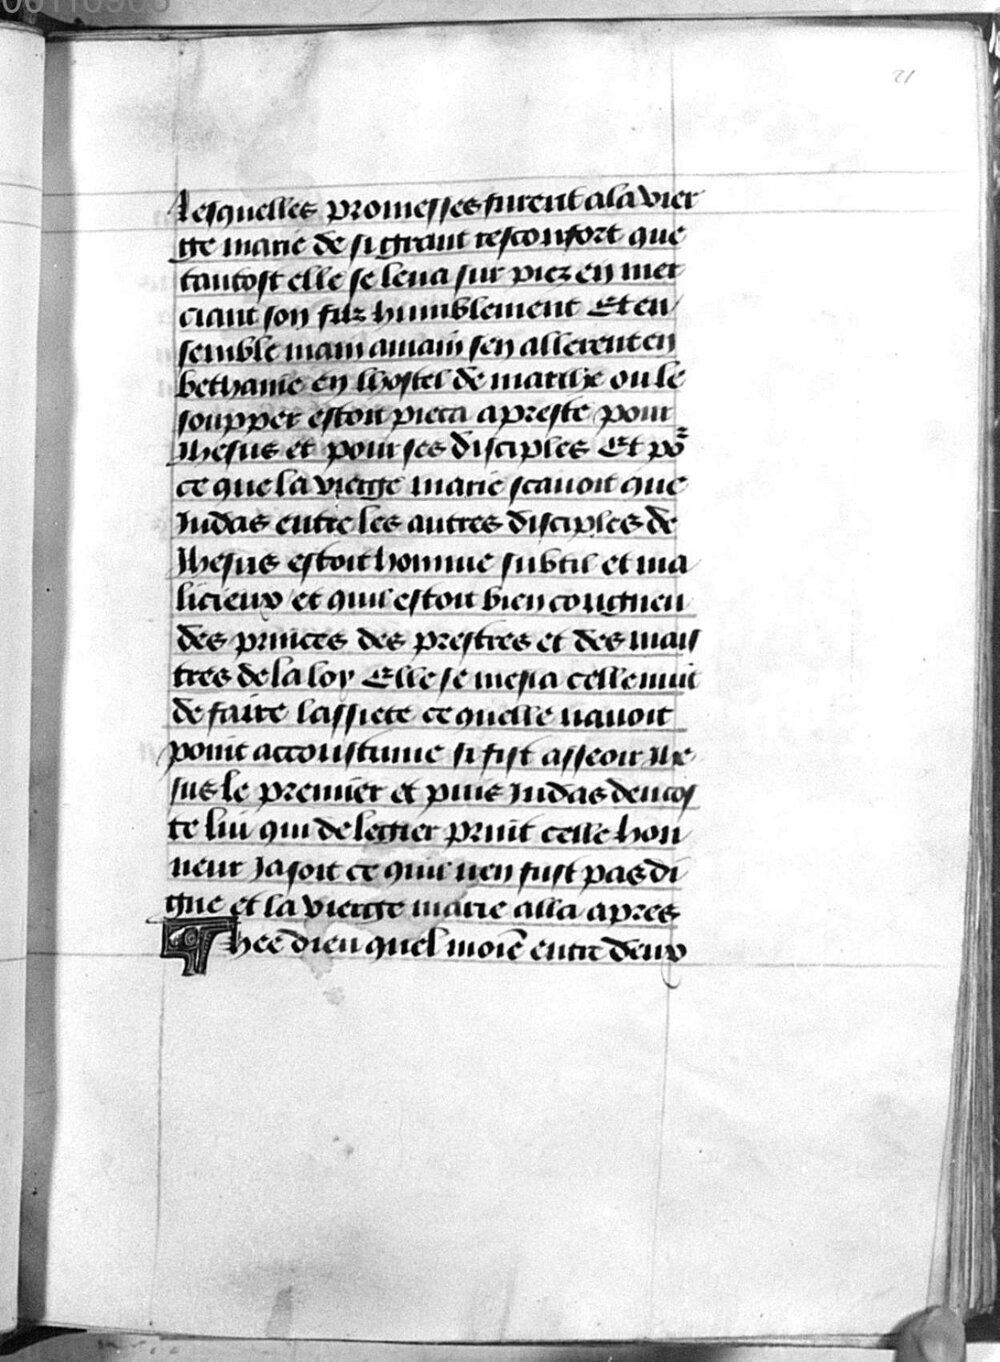 21
Lesquelles promesses furent a la vier
ge marie de si grant resconfort que
tantost elle se leva sur piez en mer
ciant son filz humblement Et en
semble main a main sen allerent en
bethanie en lhostel de marthe ou le
soupper estoit pieca apreste pour
Jhesus et pour ses disciples Et po᷑
ce que la vierge marie scavoit que
Judas entre les autres disciples de
Jhesus estoit homme subtil et ma
licieux et quil estoit bien congneu
des princes des prestres et des mais
tres de la loy Elle se mesla celle nuit
de faire lassiete ce quelle navoit
point accoustume si fist asseoir Jhe
sus le premier et puis Judas decos
te lui qui de legier print celle hon
neur Jasoit ce quil nen fust pas di
gne et la vierge marie alla apres
Hee dieu quel moiē entre deux